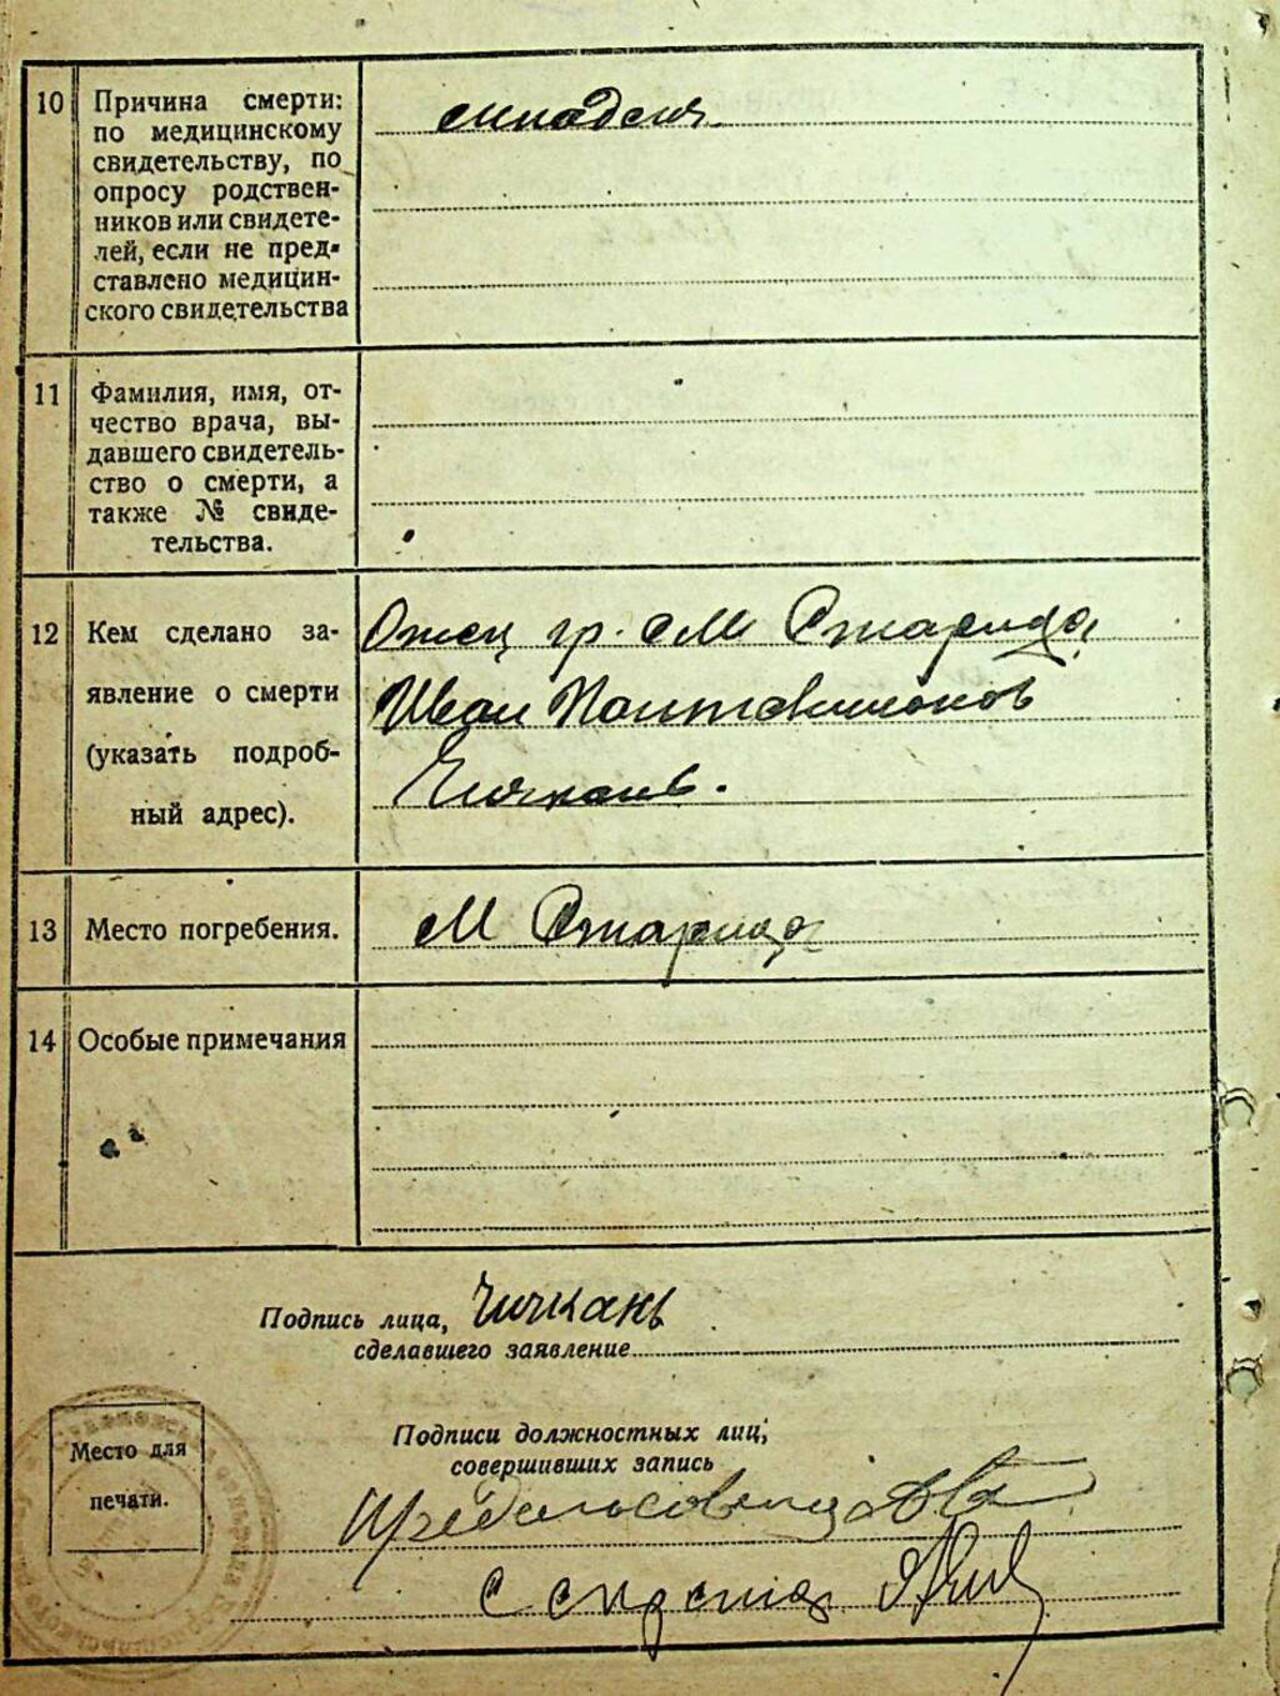 10 Причина смерти:
по медицинскому
свидетельству, по
опросу родствен-
ников или свидете-
лей, если не пред-
ставлено медицин-
ского свидетельства
младеня
11 Фамилия, имя, от-
чество врача, вы-
давшего свидетель-
ство о смерти, а
также № свиде-
тельства.
12 Кем сделано за-
явление о смерти
(указать подроб-
ный адрес).
Отец гр. с М Старица
Иван Пантелимонов
Чичкань.
13 Место погребения.
М Старица
14 Особые примечания
Подпись лица, Чичкань
сделавшего заявление
Место для
печати.
Подписи должностных лиц,
совершивших запись
Пред сельсовета
Секретар